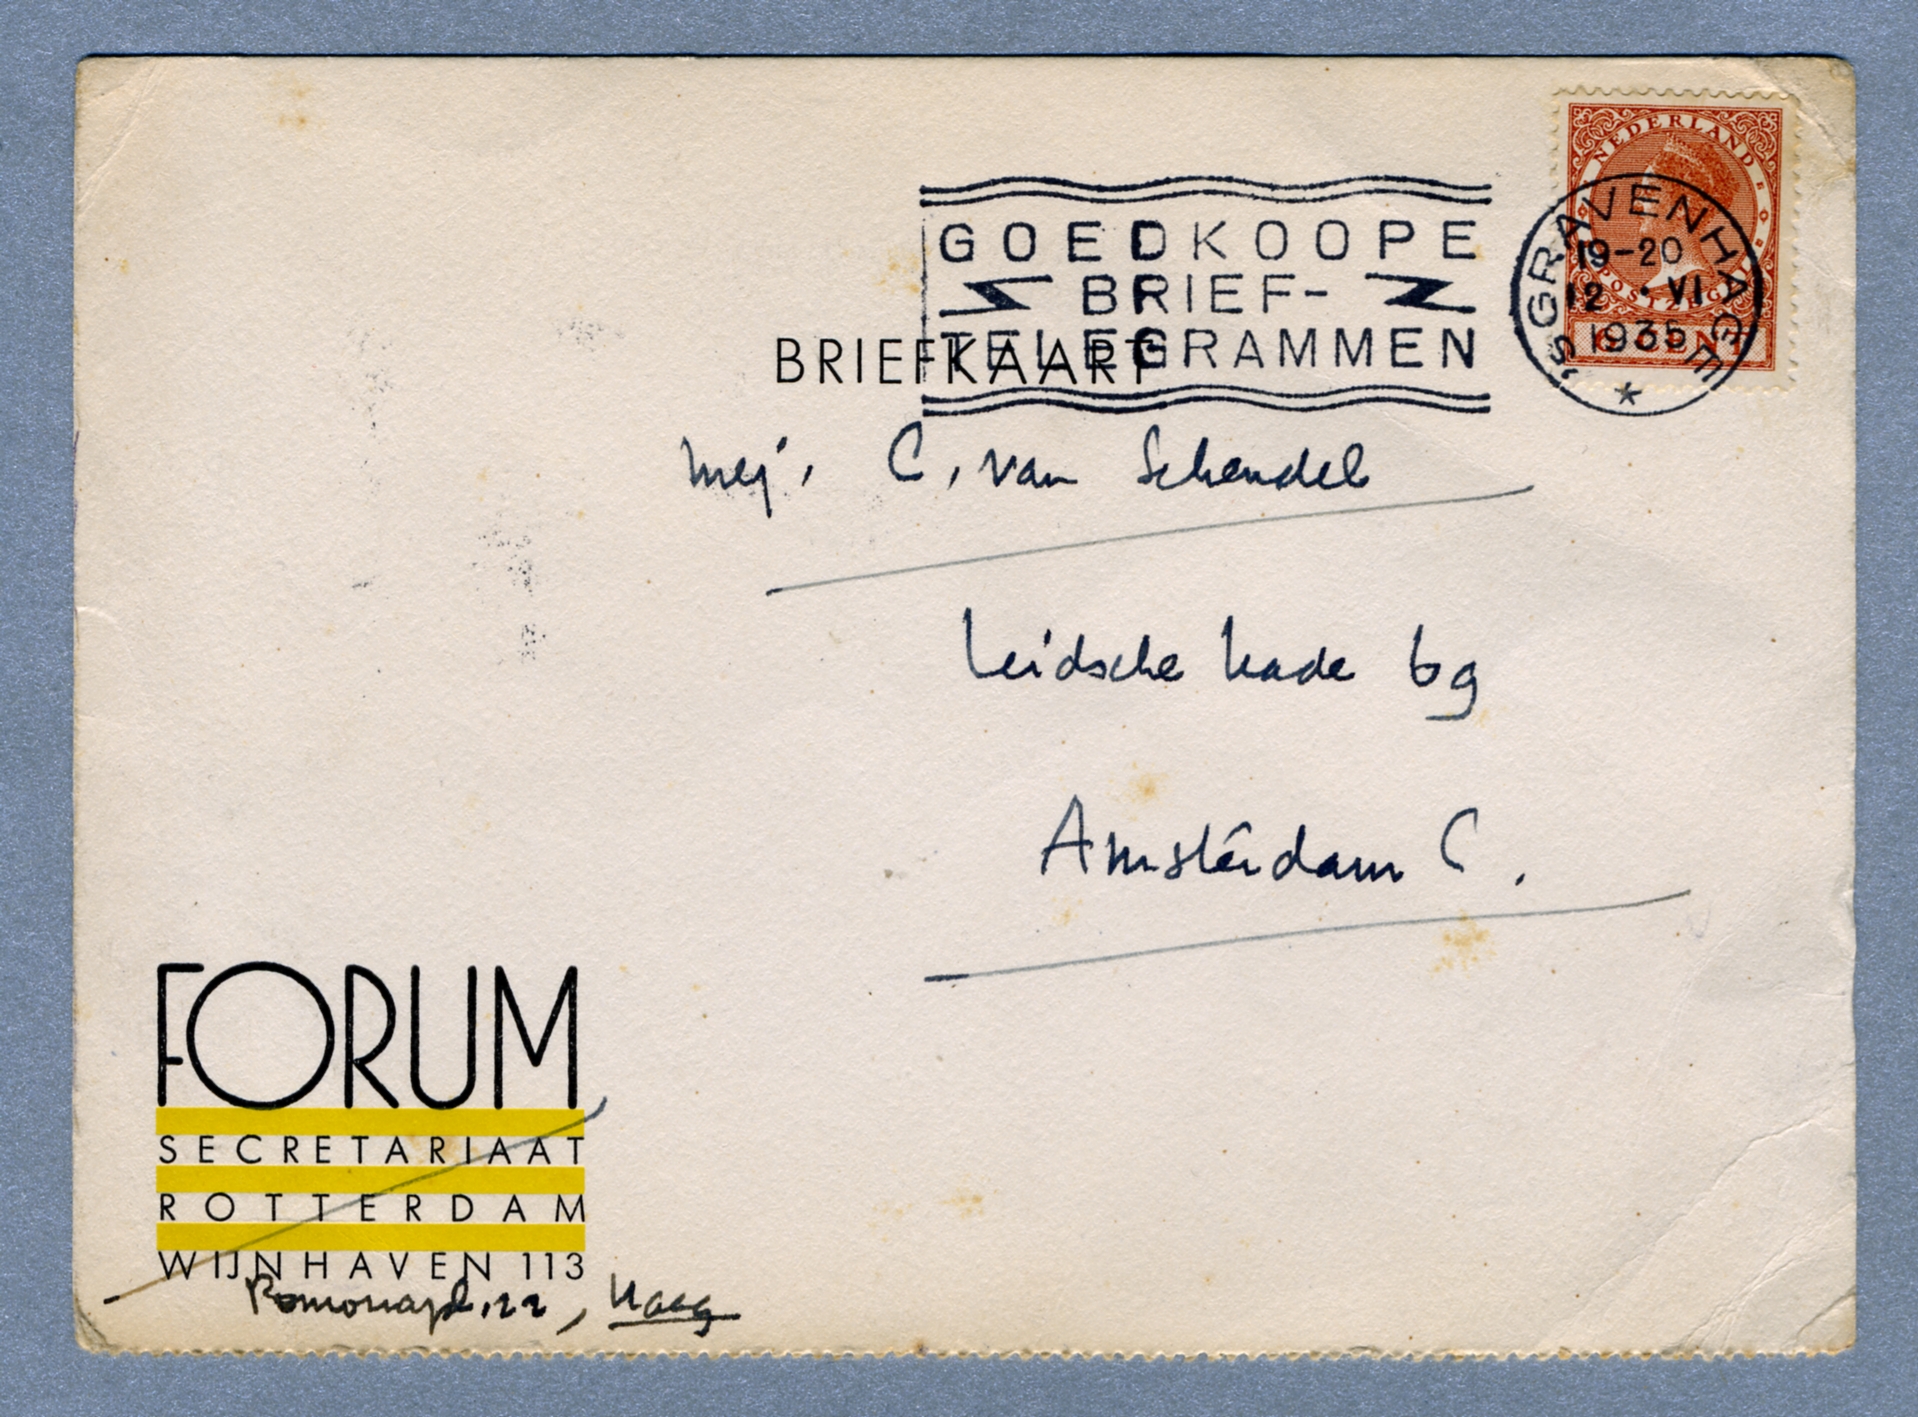 NEDERLAND
'S GRAVENHAGE
19-20
12 · VI
1935
GOEDKOOPE
BRIEF-
TELEGRAMMEN
BRIEFKAART
Mej. C. van Schendel
Leidsche Kade 69
Amsterdam C.
FORUM
SECRETARIAAT
ROTTERDAM
WIJNHAVEN 113
22, Haag